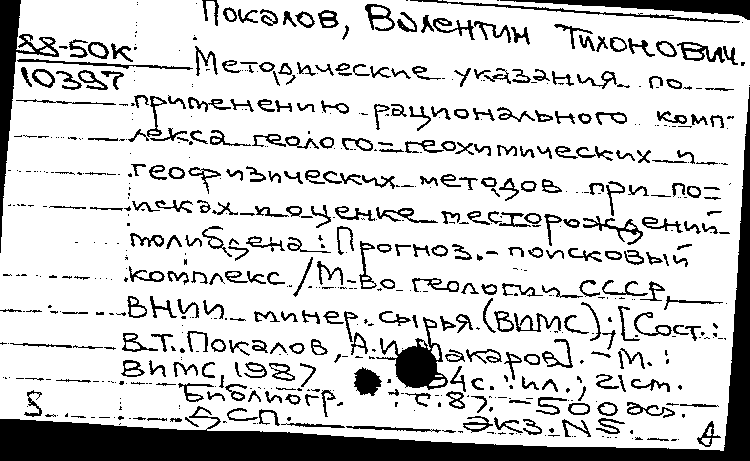 Покалов, Валентин Тихонович.
88-50К
10397
Методические указания по
применению рационального комп-
лекса геолого=геохимических и
геофизических методов при по=
исках и оценке месторождений
молибдена : Прогноз.-поисковый
комплекс / М-во геологии СССР,
ВНИИ минер. сырья (ВИМС) ; [Сост. :
В.Т. Покалов, А.И. Макаров]. - М. :
ВИМС, 1987. 84 с. : ил. ; 21 см.
Библиогр. : с. 87. - 500 экз.
ДСП. Экз. N5.